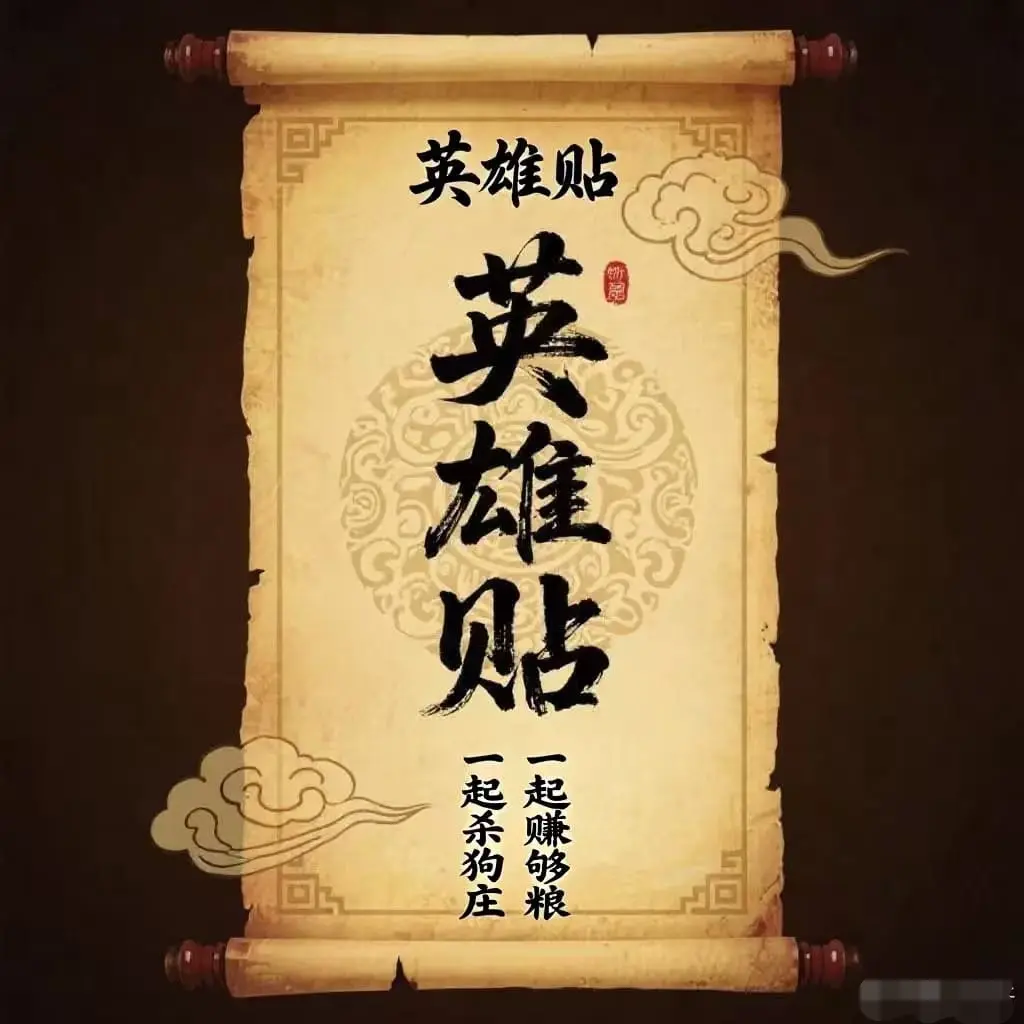 英雄贴
英雄贴
一起赚够粮
一起杀狗庄